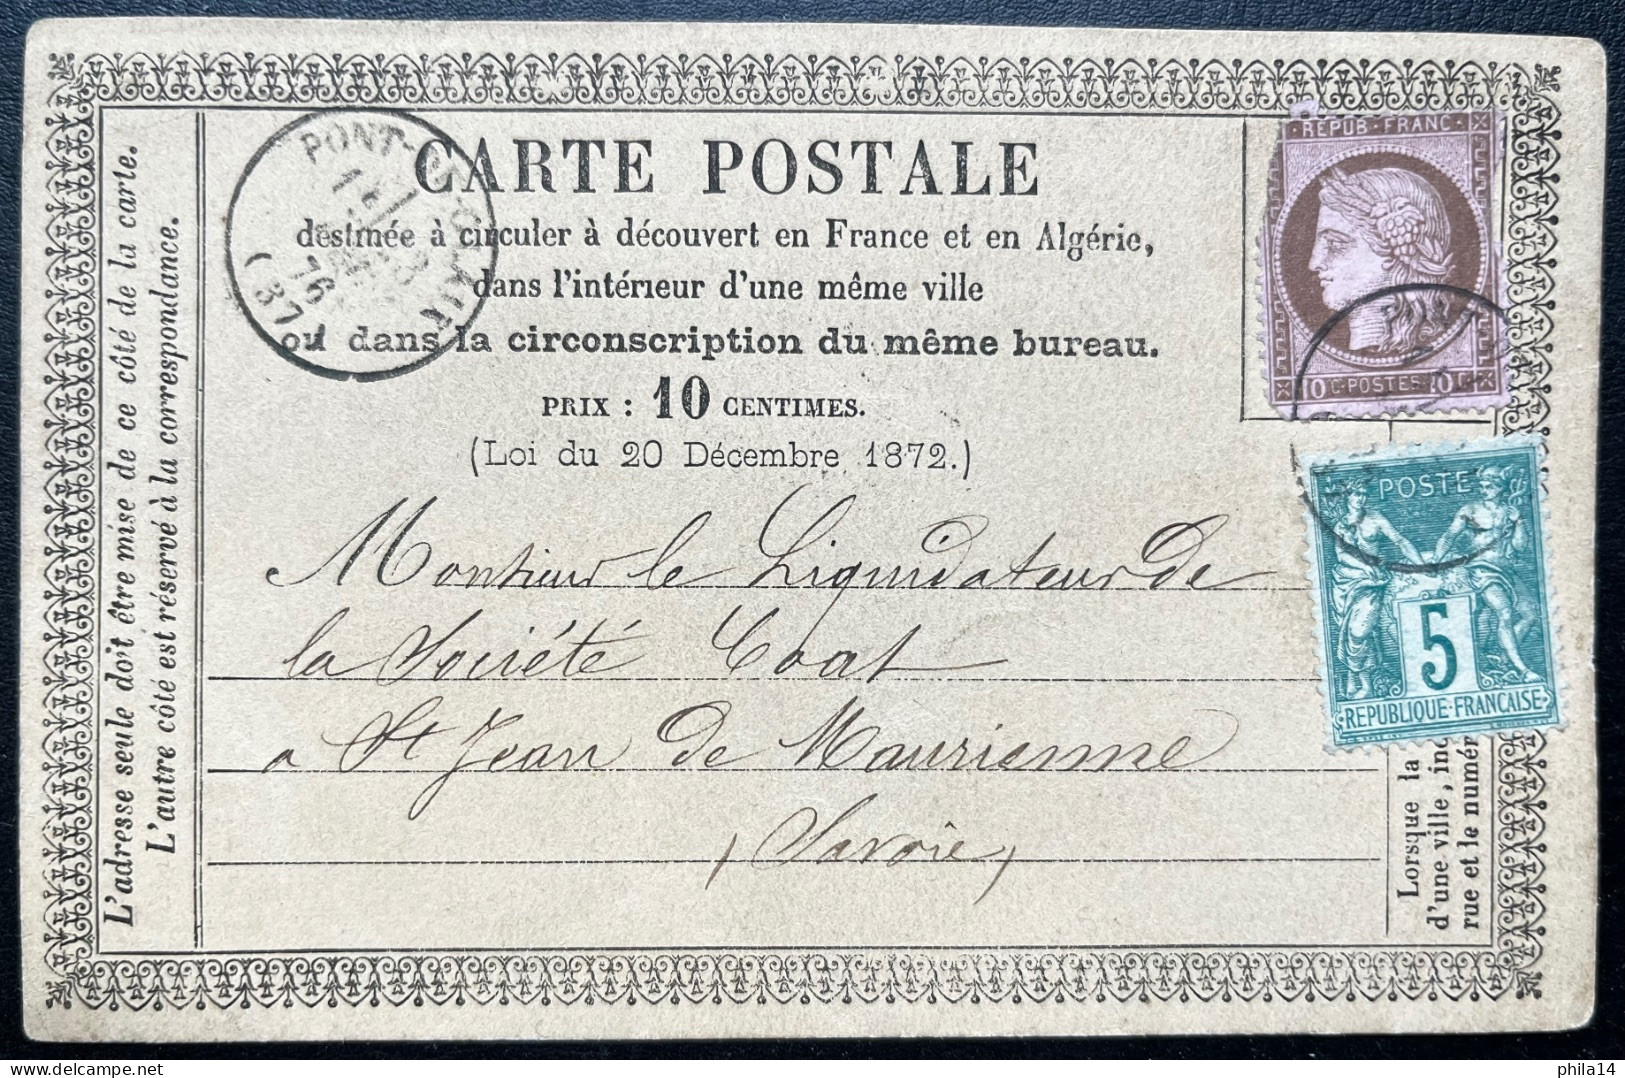 CARTE POSTALE
destinée à circuler à découvert en France et en Algérie,
dans l'intérieur d'une même ville
ou dans la circonscription du même bureau.
PRIX : 10 CENTIMES.
(Loi du 20 Décembre 1872.)
Monsieur le Liquidateur de
la Société Coat
a St Jean de Maurienne
(Savoie)
L'adresse seule doit être mise de ce côté de la carte.
L'autre côté est réservé à la correspondance.
PONT-DE-
76
(37)
REPUB·FRANC·
10 C·POSTES·10 C
POSTE
5
REPUBLIQUE·FRANÇAISE
Lorsque la
d'une ville, ind
rue et le numér
phila14